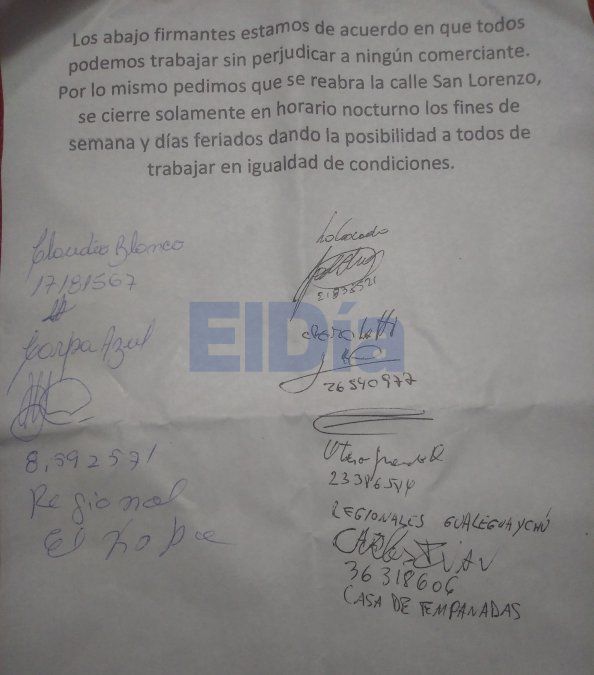 Los abajo firmantes estamos de acuerdo en que todos
podemos trabajar sin perjudicar a ningún comerciante.
Por lo mismo pedimos que se reabra la calle San Lorenzo,
se cierre solamente en horario nocturno los fines de
semana y días feriados dando la posibilidad a todos de
trabajar en igualdad de condiciones.
Claudio Blanco
17181567
Carpa Azul
8,592571
Regional
El
21838521
ElDía
26540977
23386584
REGIONALES GUALEGUAYCHÚ
36318606
CASA DE EMPANADAS